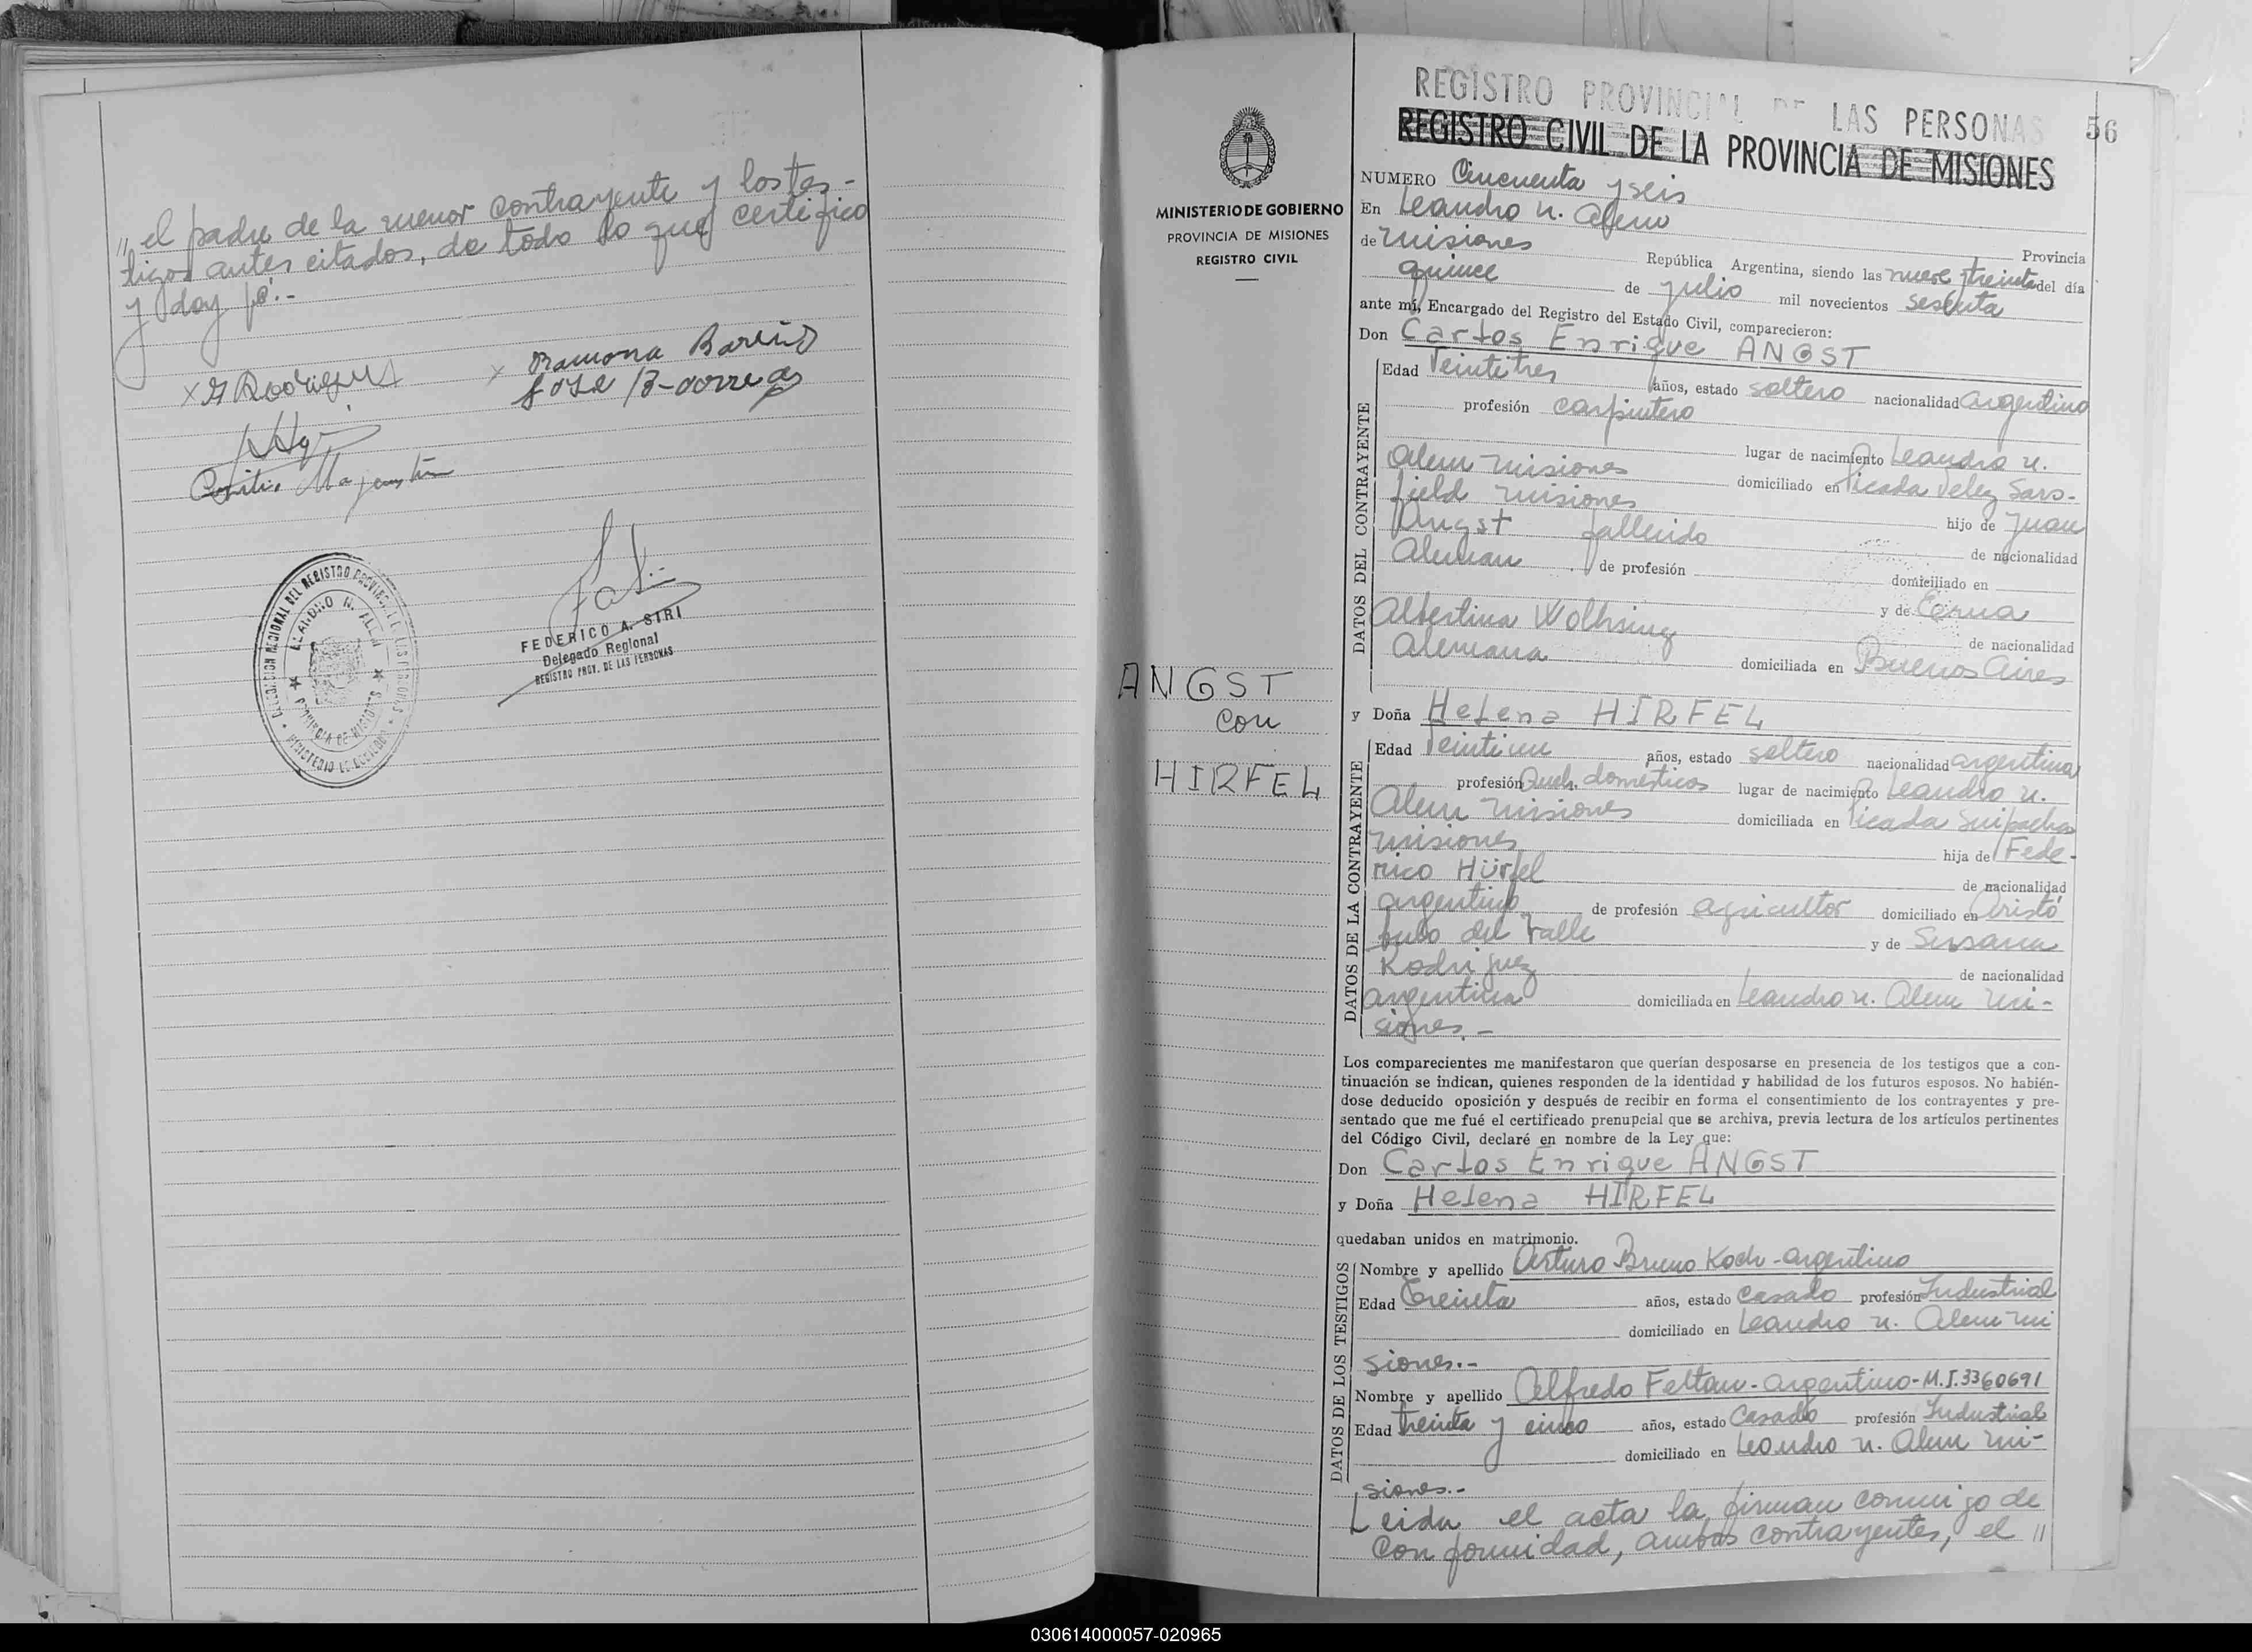 " el padre de la menor contrayente y los tes-
tigos antes citados, de todo lo que certifico
y doy fé.-
x Rodriguez
x Ramona Bareiro
José B. Correa
DELEGACION REGIONAL DEL REGISTRO PROVINCIAL DE LAS PERSONAS
LEANDRO N. ALEM
PROVINCIA DE MISIONES
MINISTERIO DE GOBIERNO
FEDERICO A. SIRI
Delegado Regional
REGISTRO PROV. DE LAS PERSONAS
MINISTERIO DE GOBIERNO
PROVINCIA DE MISIONES
REGISTRO CIVIL
ANGST
con
HIRFEL
REGISTRO PROVINCIAL DE LAS PERSONAS
56
REGISTRO CIVIL DE LA PROVINCIA DE MISIONES
NUMERO Cincuenta y seis
En Leandro N. Alem Provincia
de Misiones República Argentina, siendo las nueve treinta del día
quince de Julio mil novecientos sesenta
ante mí, Encargado del Registro del Estado Civil, comparecieron:
Don Carlos Enrique ANGST
DATOS DEL CONTRAYENTE
Edad Veintitres años, estado soltero nacionalidad argentino
profesión carpintero
lugar de nacimiento Leandro N.
Alem Misiones domiciliado en Picada Velez Sars-
field Misiones hijo de Juan
Angst fallecido de nacionalidad
Aleman de profesión domiciliado en
y de Erna
Albertina Wolhsing de nacionalidad
Alemana domiciliada en Buenos Aires
y Doña Helena HIRFEL
DATOS DE LA CONTRAYENTE
Edad Veintiun años, estado soltero nacionalidad argentina
profesión Queh. domésticos lugar de nacimiento Leandro N.
Alem Misiones domiciliada en Picada Suipacha
Misiones hija de Fede-
rico Hürfel de nacionalidad
argentino de profesión agricultor domiciliado en Aristó
bulo del Valle y de Sussana
Rodriguez de nacionalidad
argentina domiciliada en Leandro N. Alem Mi-
siones.-
Los comparecientes me manifestaron que querían desposarse en presencia de los testigos que a con-
tinuación se indican, quienes responden de la identidad y habilidad de los futuros esposos. No habién-
dose deducido oposición y después de recibir en forma el consentimiento de los contrayentes y pre-
sentado que me fué el certificado prenupcial que se archiva, previa lectura de los artículos pertinentes
del Código Civil, declaré en nombre de la Ley que:
Don Carlos Enrique ANGST
y Doña Helena HIRFEL
quedaban unidos en matrimonio.
DATOS DE LOS TESTIGOS
Nombre y apellido Arturo Bruno Koch - argentino
Edad Treinta años, estado casado profesión Industrial
domiciliado en Leandro N. Alem Mi
siones.-
Nombre y apellido Alfredo Feltan - argentino - M.I. 3360691
Edad treinta y cinco años, estado casado profesión Industrial
domiciliado en Leandro N. Alem Mi-
siones.-
Leida el acta la firman conmigo de
conformidad, ambos contrayentes, el "
030614000057-020965